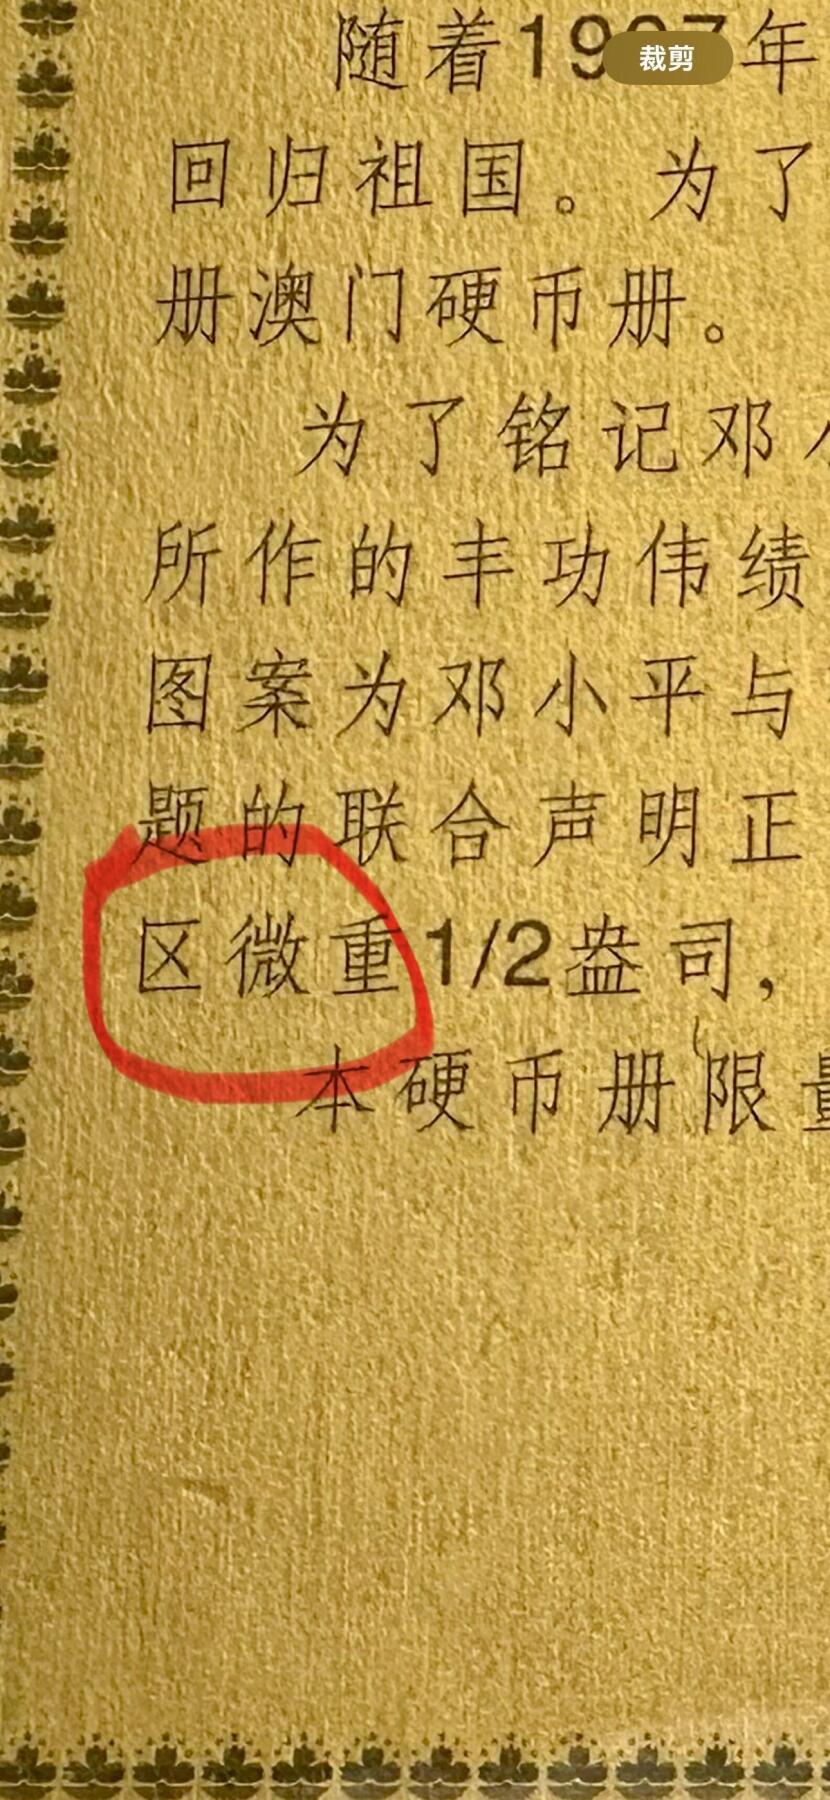 随着19 7年
裁剪
回归祖国。为了
册澳门硬币册。
为了铭记邓
所作的丰功伟绩
图案为邓小平与
题的联合声明正
区微重1/2盎司，
本硬币册限量